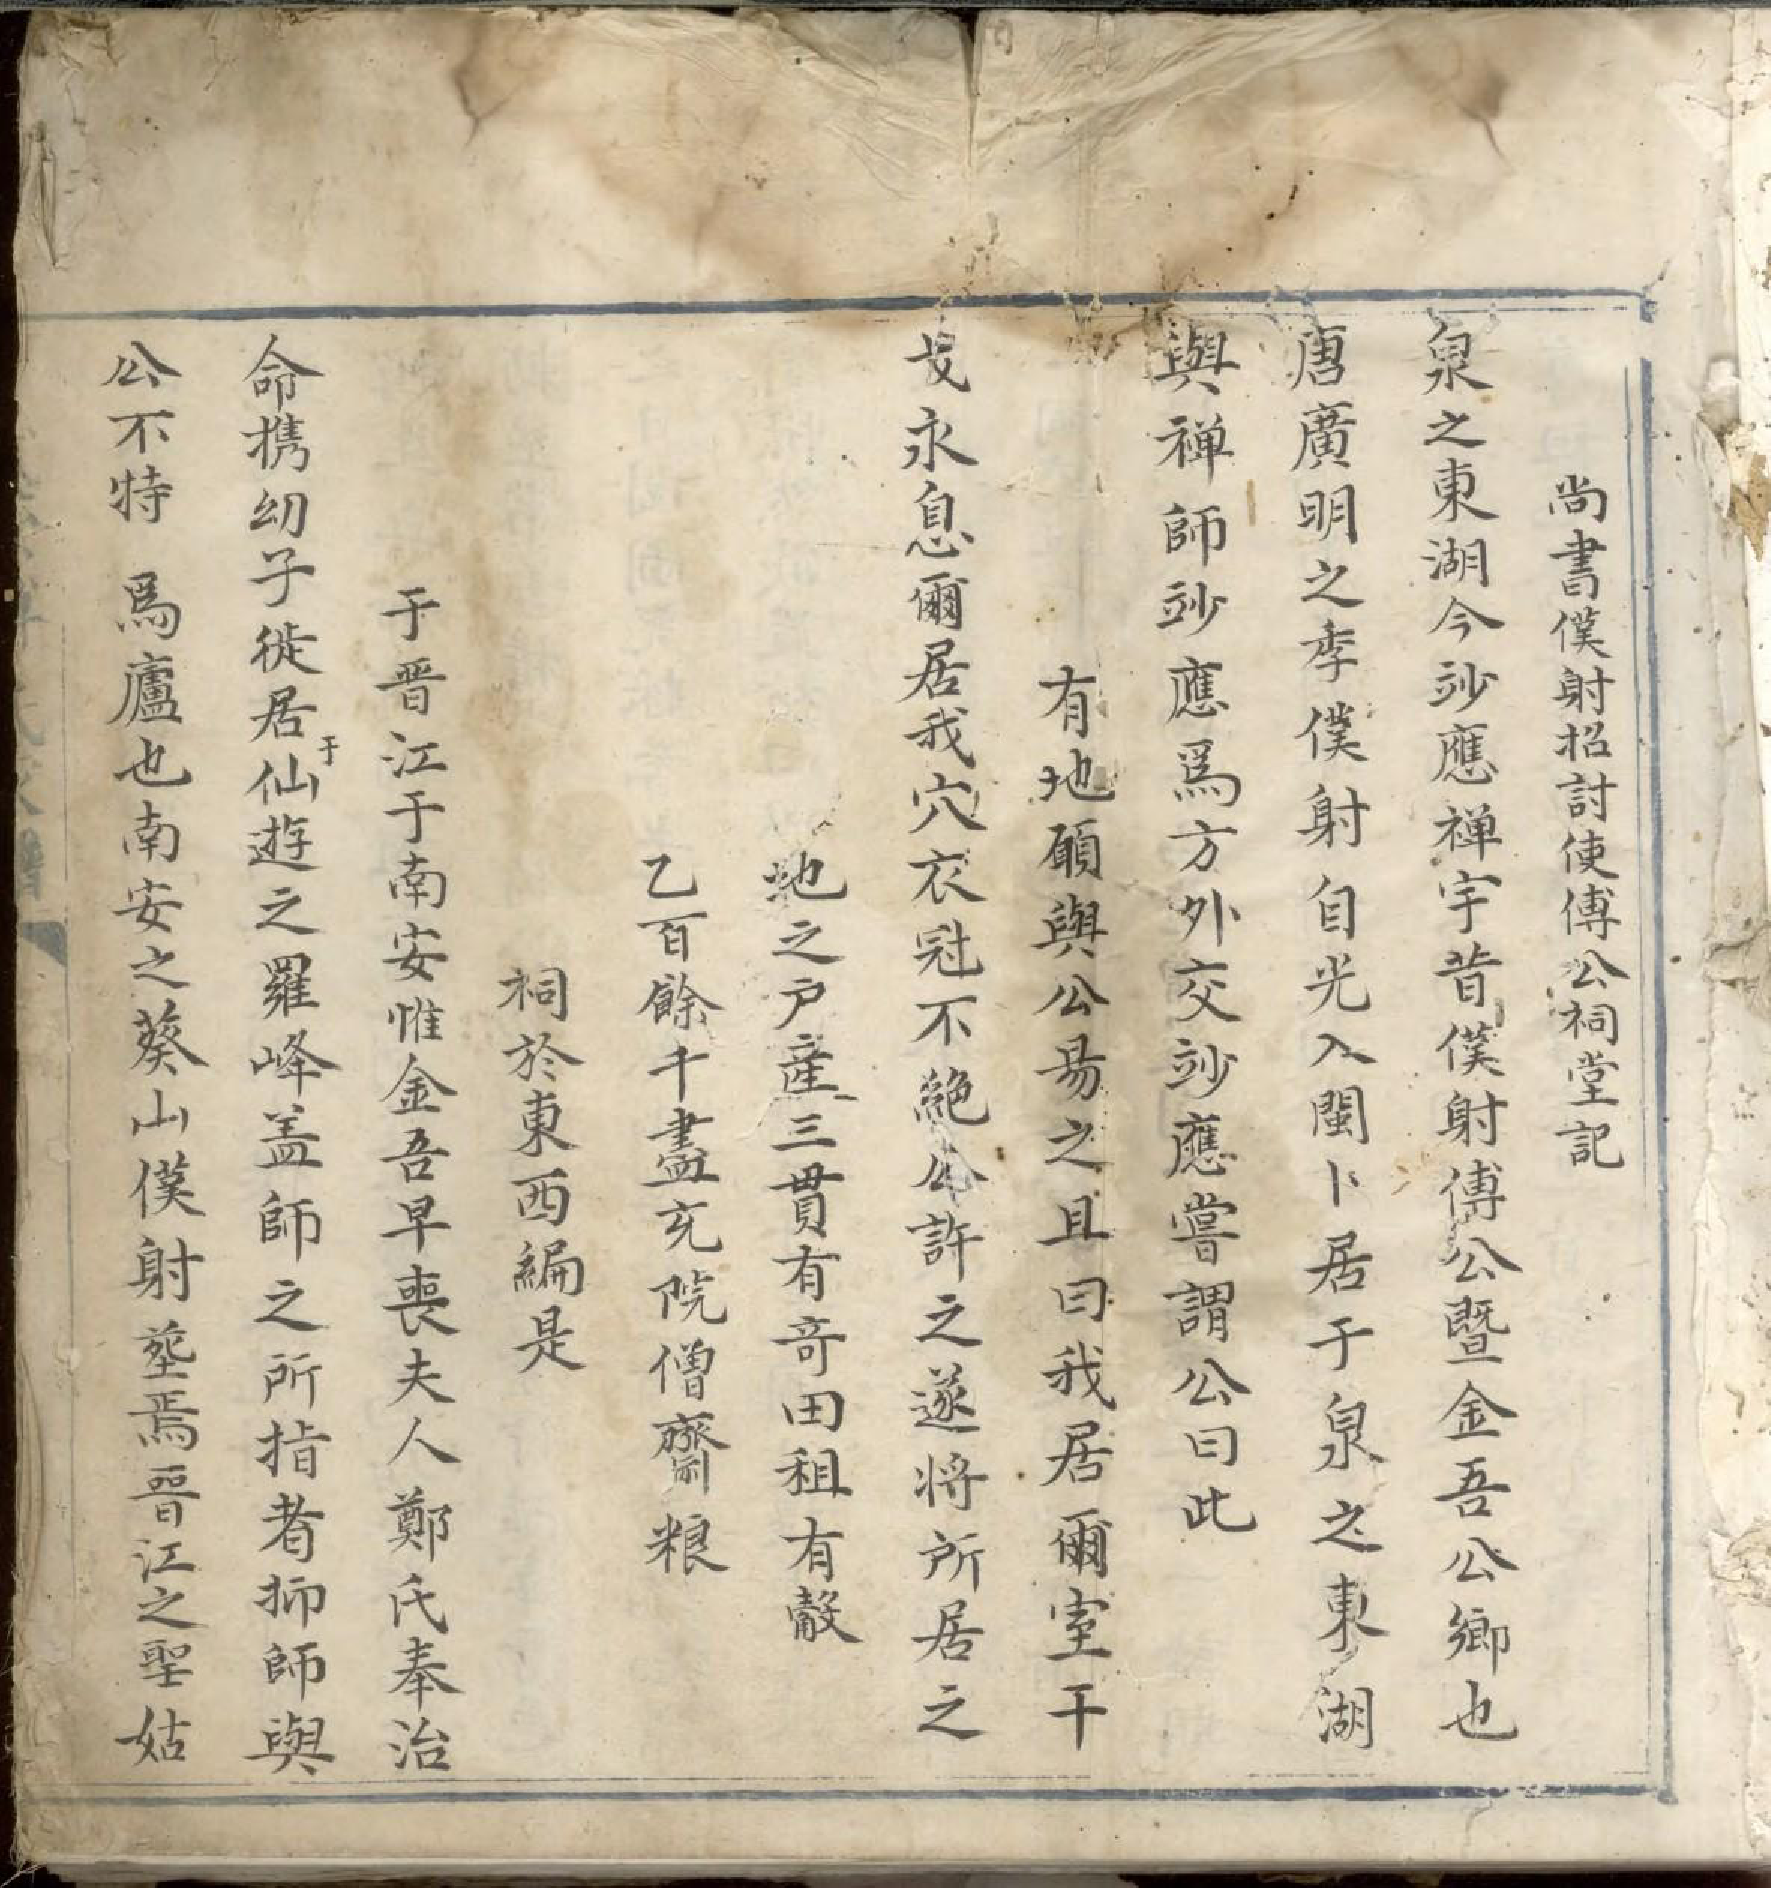 尚書僕射招討使傅公祠堂記
泉之東湖今玅應禅宇昔僕射傅公暨金吾公鄉也
唐廣明之季僕射自光入閩卜居于泉之東湖
與禅師玅應爲方外交玅應嘗謂公曰此
有地願與公昜之且曰我居爾室干
戈永息爾居我穴衣冠不絶公許之遂将所居之
地之户產三貫有竒田租有
乙百餘千盡充院僧齋粮
祠於東西編是
于晋江于南安惟金吾早喪夫人鄭氏奉治
命携幼子徙居于仙遊之羅峰盖師之所指者抑師與
公不特爲廬也南安之葵山僕射塟焉晉江之聖姑